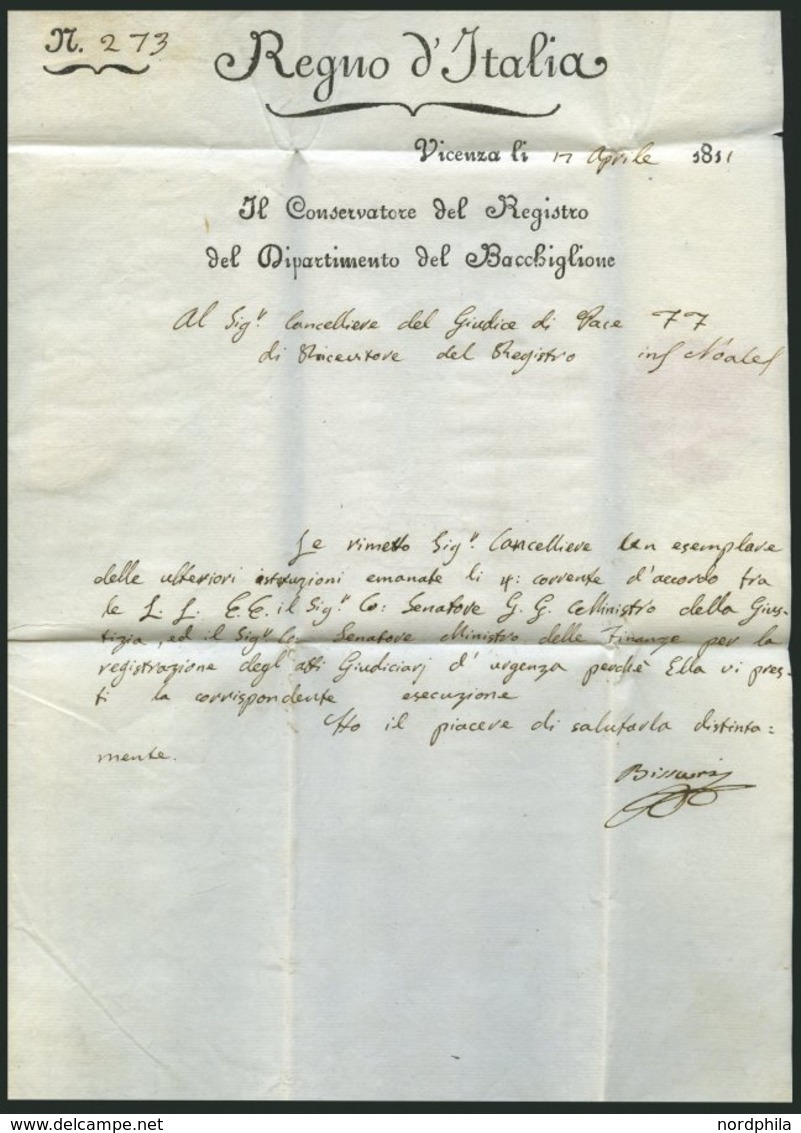 N. 273
Regno d'Italia
Vicenza li 17 Aprile 1811
Il Conservatore del Registro
del Dipartimento del Bacchiglione
Al Sigr. Cancelliere del Giudice di Pace FF
di Ricevitore del Registro in Noale
Le rimetto Sigr. Cancelliere un esemplare
delle ulteriori istruzioni emanate li 4: corrente d'accordo fra
le L. L. E. E. il Sigr. Co: Senatore G. G. Ministro della Gius-
tizia, ed il Sigr. Co: Senatore Ministro delle Finanze per la
registrazione degl'atti Giudiciarj d'urgenza perchè Ella vi pres-
ti la corrispondente esecuzione
Ho il piacere di salutarla distinta=
mente.
delcampe.net
nordphila